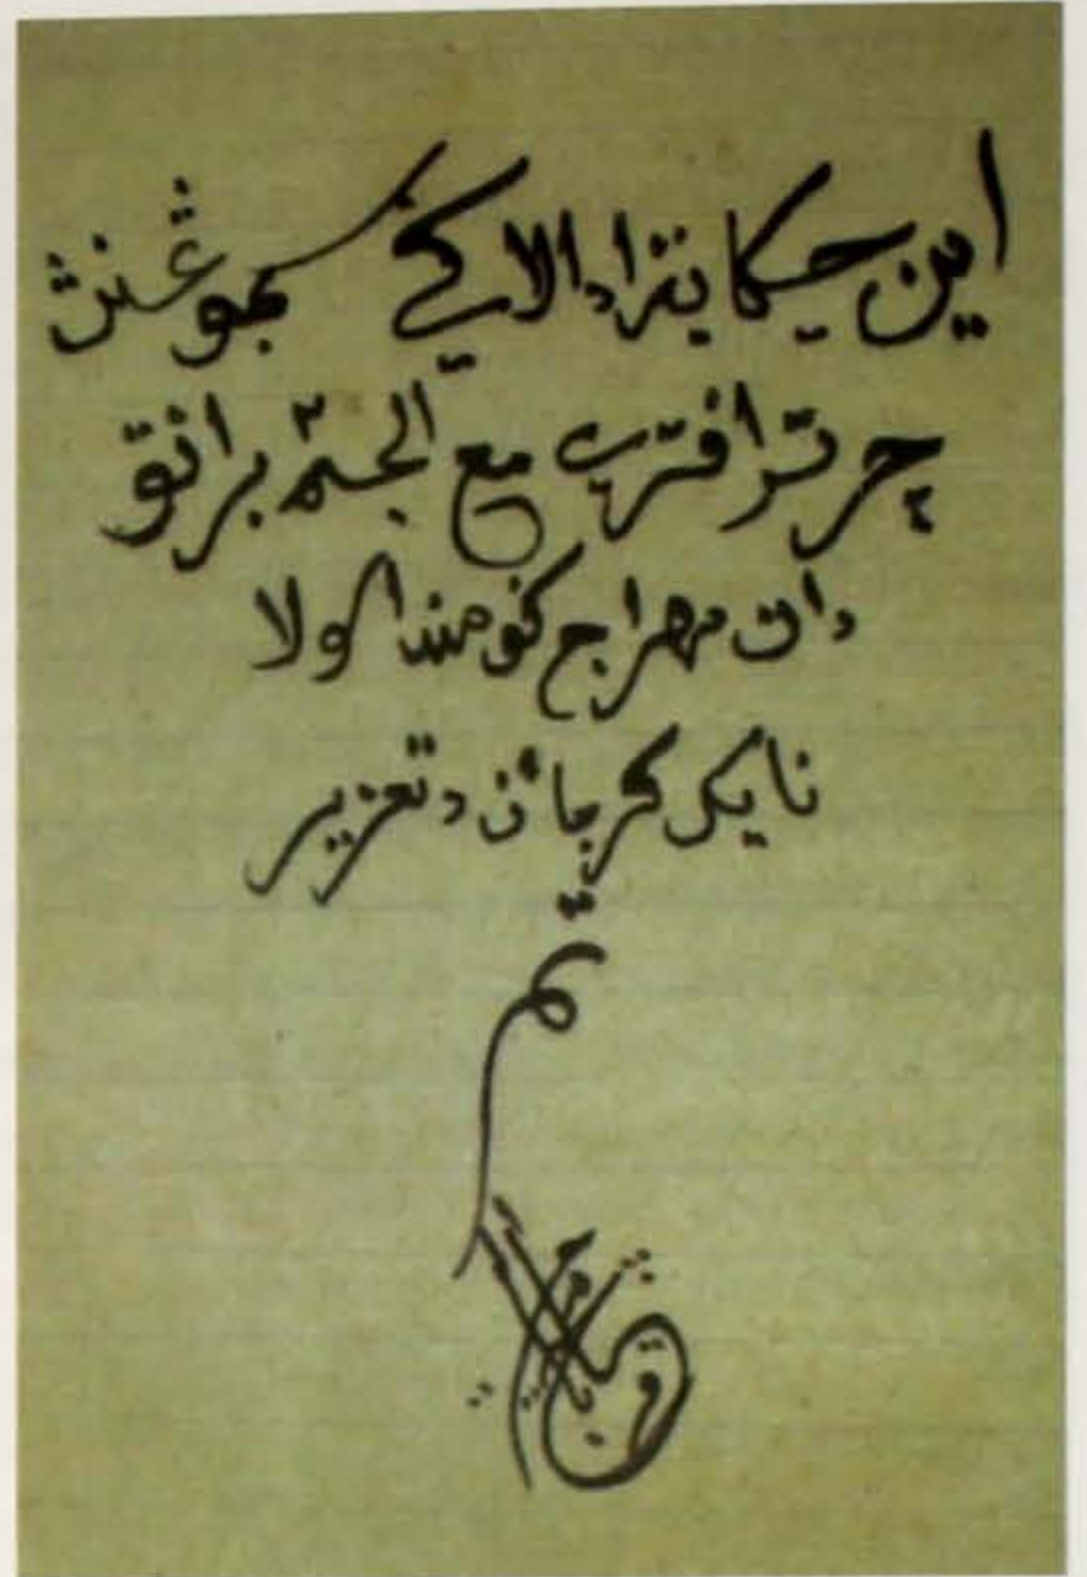 اين حكايتڽ اد الاكي سمبوڠنڽ
چرترا فتري مع الجم برانق
دان مهراج كومندا كولا
نايك كرجاءن دتعزير